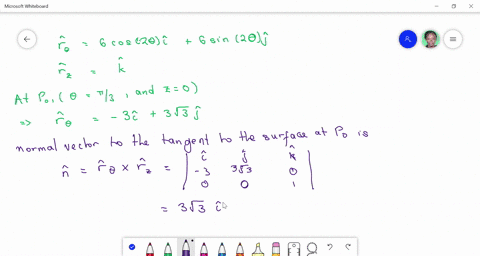 Microsoft Whiteboard
r̂_θ = 6 cos(2θ)î + 6 sin(2θ)ĵ
r̂_z = k̂
At P₀, (θ = π/3, and z=0)
⇒ r̂_θ = -3î + 3√3 ĵ
normal vector to the tangent to the surface at P₀ is
n̂ = r̂_θ × r̂_z = | î ĵ k̂ |
| -3 3√3 0 |
| 0 0 1 |
= 3√3 î